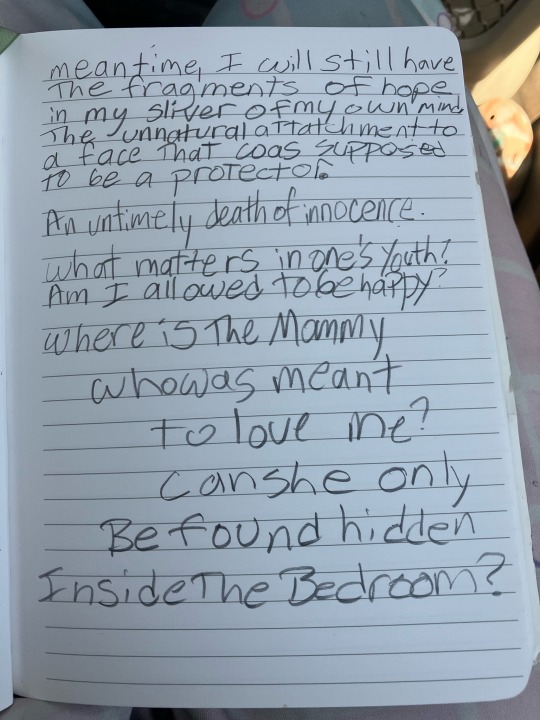 meantime, I will still have
The fragments of hope
in my sliver of my own mind
The unnatural aTTatchment to
a face That coas supposed
to be a protector.
An untimely death of innocence.
what matters in one's Youth?
Am I allowed to be happy?
where is The Mommy
who was meant
to love me?
can she only
Be found hidden
Inside The Bedroom?